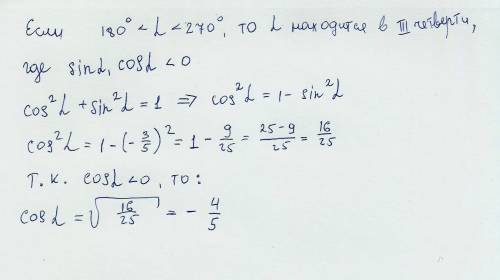 Если 180° < α < 270°, то α находится в III четверти,
где sinα, cosα < 0
cos²α + sin²α = 1 ⇒ cos²α = 1 - sin²α
cos²α = 1 - (-3/5)² = 1 - 9/25 = 25-9/25 = 16/25
Т.к. cosα < 0, то:
cosα = √16/25 = - 4/5